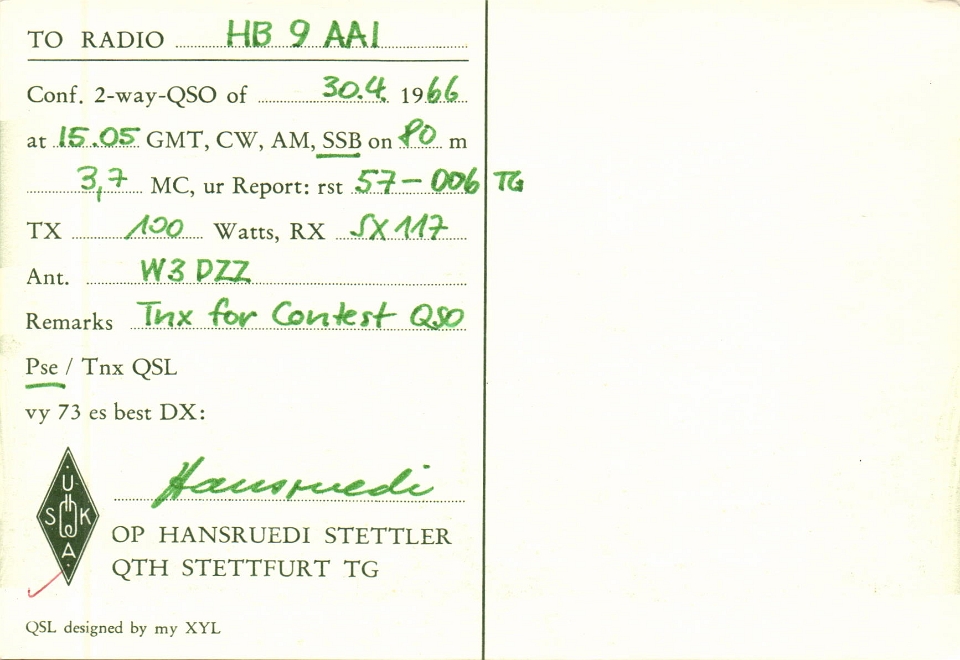 TO RADIO HB 9 AAI
Conf. 2-way-QSO of 30.4. 1966
at 15.05 GMT, CW, AM, SSB on 80 m
3,7 MC, ur Report: rst 57-006 TG
TX 100 Watts, RX SX117
Ant. W3DZZ
Remarks Tnx for Contest QSO
Pse / Tnx QSL
vy 73 es best DX:
Hansruedi
U
S K
A
OP HANSRUEDI STETTLER
QTH STETTFURT TG
QSL designed by my XYL